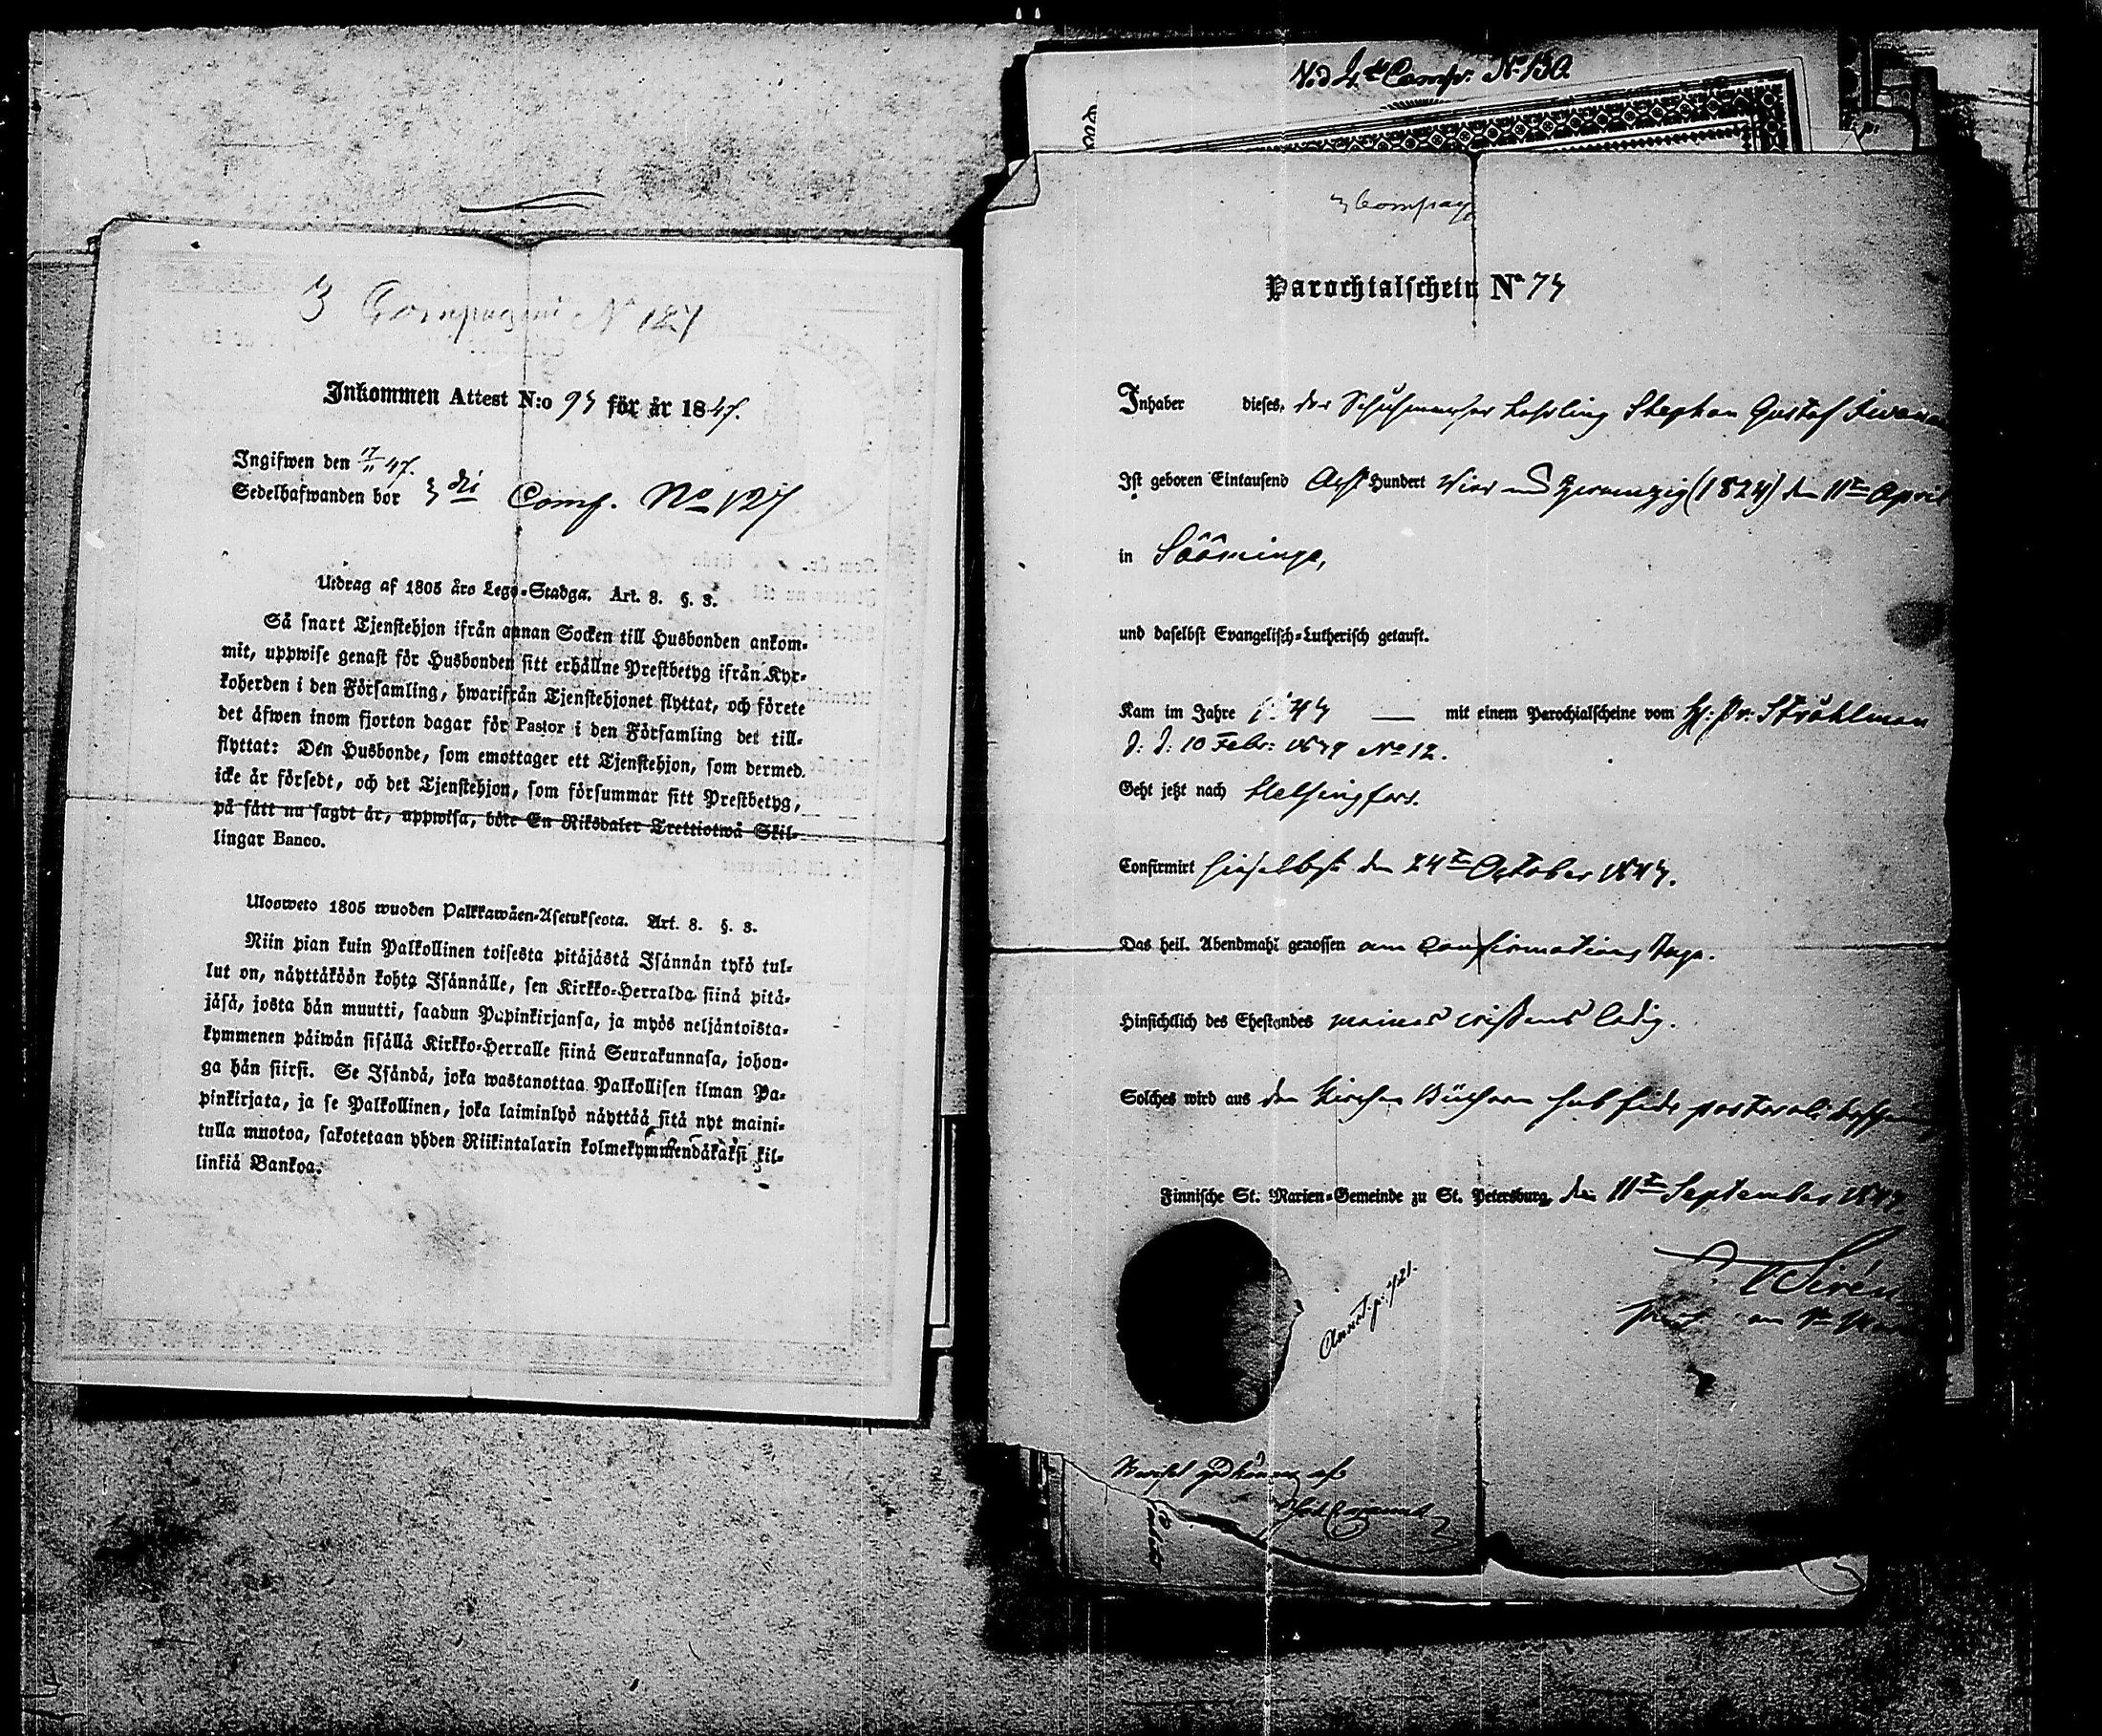 3 Compagni N 127
Inkommen Attest N:o 93 för år 1847.
Ingifwen den 17/11 47.
Sedelhafwanden bor 3 die Comp. No 127
Utdrag af 1805 års Lego-Stadga. Art. 8. §. 3.
Så snart Tjenstehjon ifrån annan Socken till Husbonden ankom-
mit, uppwise genast för Husbonden sitt erhållne Prestbetyg ifrån Kyr-
koherden i den Församling, hwarifrån Tjenstehjonet flyttat, och förete
det äfwen inom fjorton dagar för Pastor i den Församling det till-
flyttat: Den Husbonde, som emottager ett Tjenstehjon, som dermed
icke är försedt, och det Tjenstehjon, som försummar sitt Prestbetyg,
på sätt nu sagdt är, uppwisa, böte En Riksdaler Trettiotwå Skil-
lingar Banco.
Ulosweto 1805 wuoden Palkkawäen-Asetuksesta. Art. 8. §. 3.
Niin pian kuin Palkollinen toisesta pitäjästä Isännän tykö tul-
lut on, näyttäköön kohta Isännälle, sen Kirkko-Herralda siinä pitä-
jäsä, josta hän muutti, saadun Papinkirjansa, ja myös neljäntoista-
kymmenen päiwän sisällä Kirkko-Herralle siinä Seurakunnasa, johon-
ga hän siirsi. Se Isändä, joka wastanottaa Palkollisen ilman Pa-
pinkirjata, ja se Palkollinen, joka laiminlyö näyttää sitä nyt maini-
tulla muotoa, sakotetaan yhden Riikintalarin kolmekymmendäkaksi kil-
linkiä Bankoa.
4de Comp. No 130.
3 Compag
Parochialschein No 73
Inhaber dieses, der Schuhmacher Lehrling Stephan Gustaf
Ist geboren Eintausend Acht Hundert Vier und Zwanzig (1824) den 11ten April
in Sääminge,
und daselbst Evangelisch-Lutherisch getauft.
Kam im Jahre — mit einem Parochialscheine vom H. Pr. Ståhlman
d. d. 10 Febr: No 12.
Geht jetzt nach Helsingfors.
Confirmirt hieselbst den 24ten October
Das heil. Abendmahl genossen am Confirmations Tage.
Hinsichtlich des Ehestandes meines wissens ledig.
Solches wird aus den Kirchen Büchern sub fide pastorali
Finnische St. Marien-Gemeinde zu St. Petersburg, den 11ten September
Sirén
Annot. p. 421.